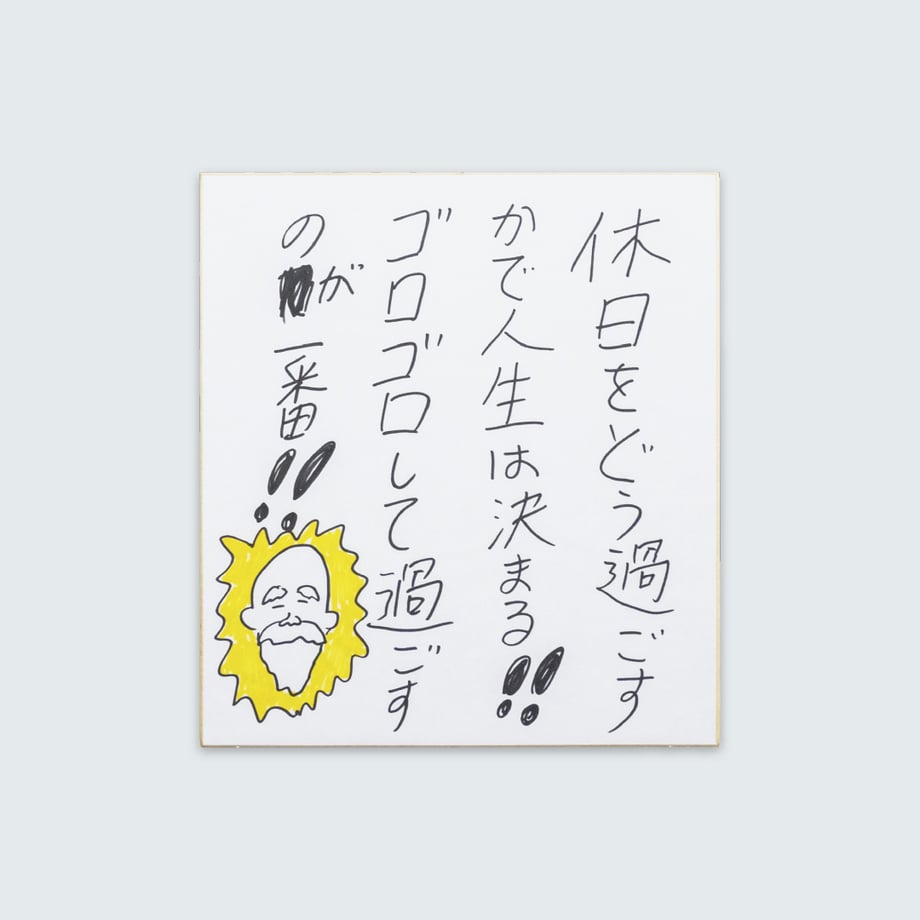 休日をどう過ごす
かで人生は決まる!!
ゴロゴロして過ごす
のが一番!!